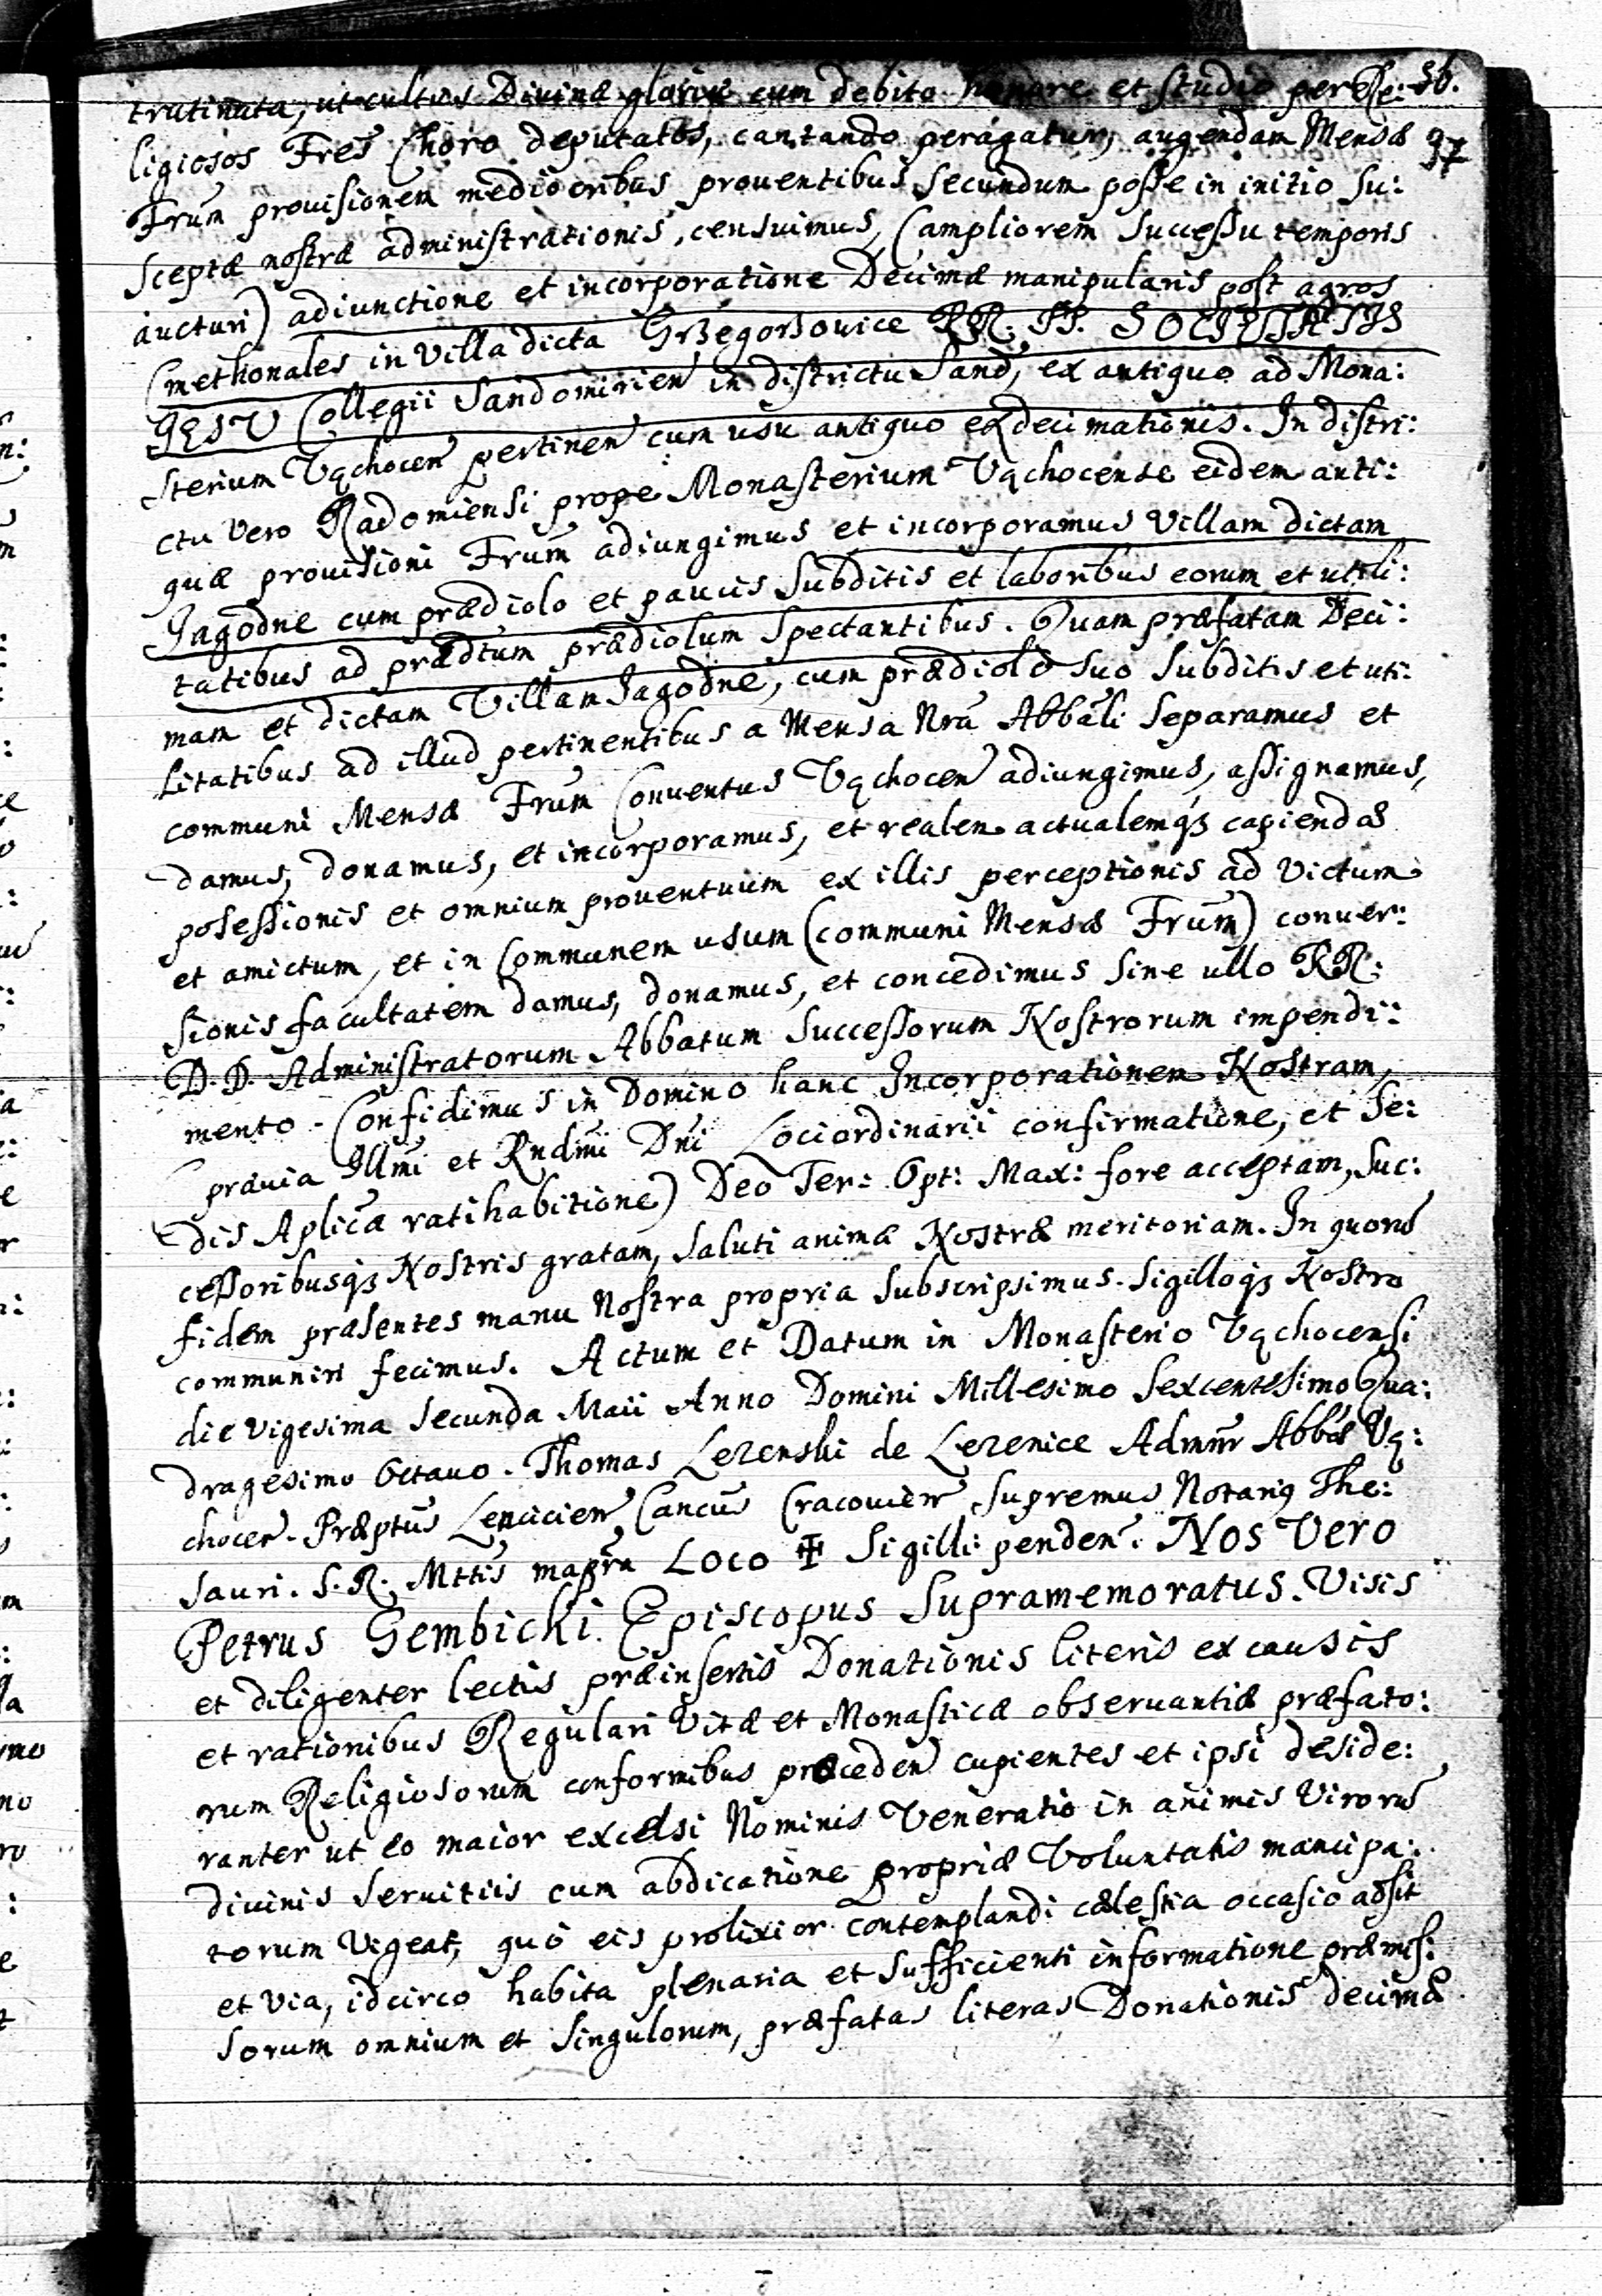 trutinata, ut cultus Divinæ gloriæ cum debito honore et studio per Re: 36.
ligiosos Fres Choro deputatos, cantando peragatur, augendam Mensæ 37
Frum prouisionem mediocribus prouentibus secundum posse in initio su:
sceptæ nostræ administrationis, censuimus, (ampliorem successu temporis
aucturi) adiunctione et incorporatione Decimæ manipularis post agros
Cmethonales in Villa dicta Grzegorzouice RR. PP. SOCIETATIS
IESV Collegii Sandomirien in districtu Sand, ex antiquo ad Mona:
sterium Vąchocen pertinen cum usu antiquo exdecimationis. In distri:
ctu vero Radomiensi prope Monasterium Vąchocense eidem anti:
quæ prouisioni Frum adiungimus et incorporamus Villam dictam
Jagodne cum prædiolo et paucis subditis et laboribus eorum et utili:
tatibus ad prædtum prædiolum spectantibus. Quam præfatam Deci:
mam et dictam Villam Jagodne, cum prædiolo suo subditis et uti:
litatibus ad illud pertinentibus a Mensa Nra Abbali separamus et
communi Mensæ Frum Conuentus Vąchocen adiungimus, assignamus,
damus, donamus, et incorporamus, et realem actualemqz capiendæ
posessionis et omnium prouentuum ex illis perceptionis ad victum
et amictum, et in Communem usum (communi Mensæ Frum) conuer:
sionis facultatem damus, donamus, et concedimus sine ullo RR:
D.D. Administratorum Abbatum Successorum Nostrorum impendi:
mento. Confidimus in Domino hanc Incorporationem Nostram,
(præuia Illmi et Rndmi Dni Loci ordinarii confirmatione, et Se:
dis Aplicæ ratihabitione) Deo Ter: Opt: Max: fore acceptam, suc:
cessoribusqz Nostris gratam, saluti animæ Nostræ meritoriam. In quoru
fidem præsentes manu Nostra propria subscripsimus. Sigilloqz Nostro
communiri fecimus. Actum et Datum in Monasterio Vąchocensi
die vigesima secunda Maii Anno Domini Millesimo Sexcentesimo Qua:
dragesimo Octauo. Thomas Lezenski de Lezenice Admnr Abbas Vą:
chocen. Præptus Lencicien Cancus Cracouien, Supremus Notariq The:
sauri. S. R. Mttis mapra Loco ✠ Sigilli penden. Nos Vero
Petrus Gembicki Episcopus Supramemoratus. Visis
et diligenter lectis præinsertis Donationis literis ex causis
et rationibus Regulari Vitæ et Monasticæ obseruantiæ præfato:
rum Religiosorum conformibus proceden cupientes et ipsi deside:
ranter ut eo maior excelsi Nominis Veneratio in animis Viroru
diuinis seruitiis cum abdicatione propriæ Voluntatis mancipa:
torum Vigeat, quo eis prolixior contemplandi cælestia occasio adsit
et via, idcirco habita plenaria et sufficienti informatione præmis:
sorum omnium et singulorum, præfatas literas Donationis decimæ